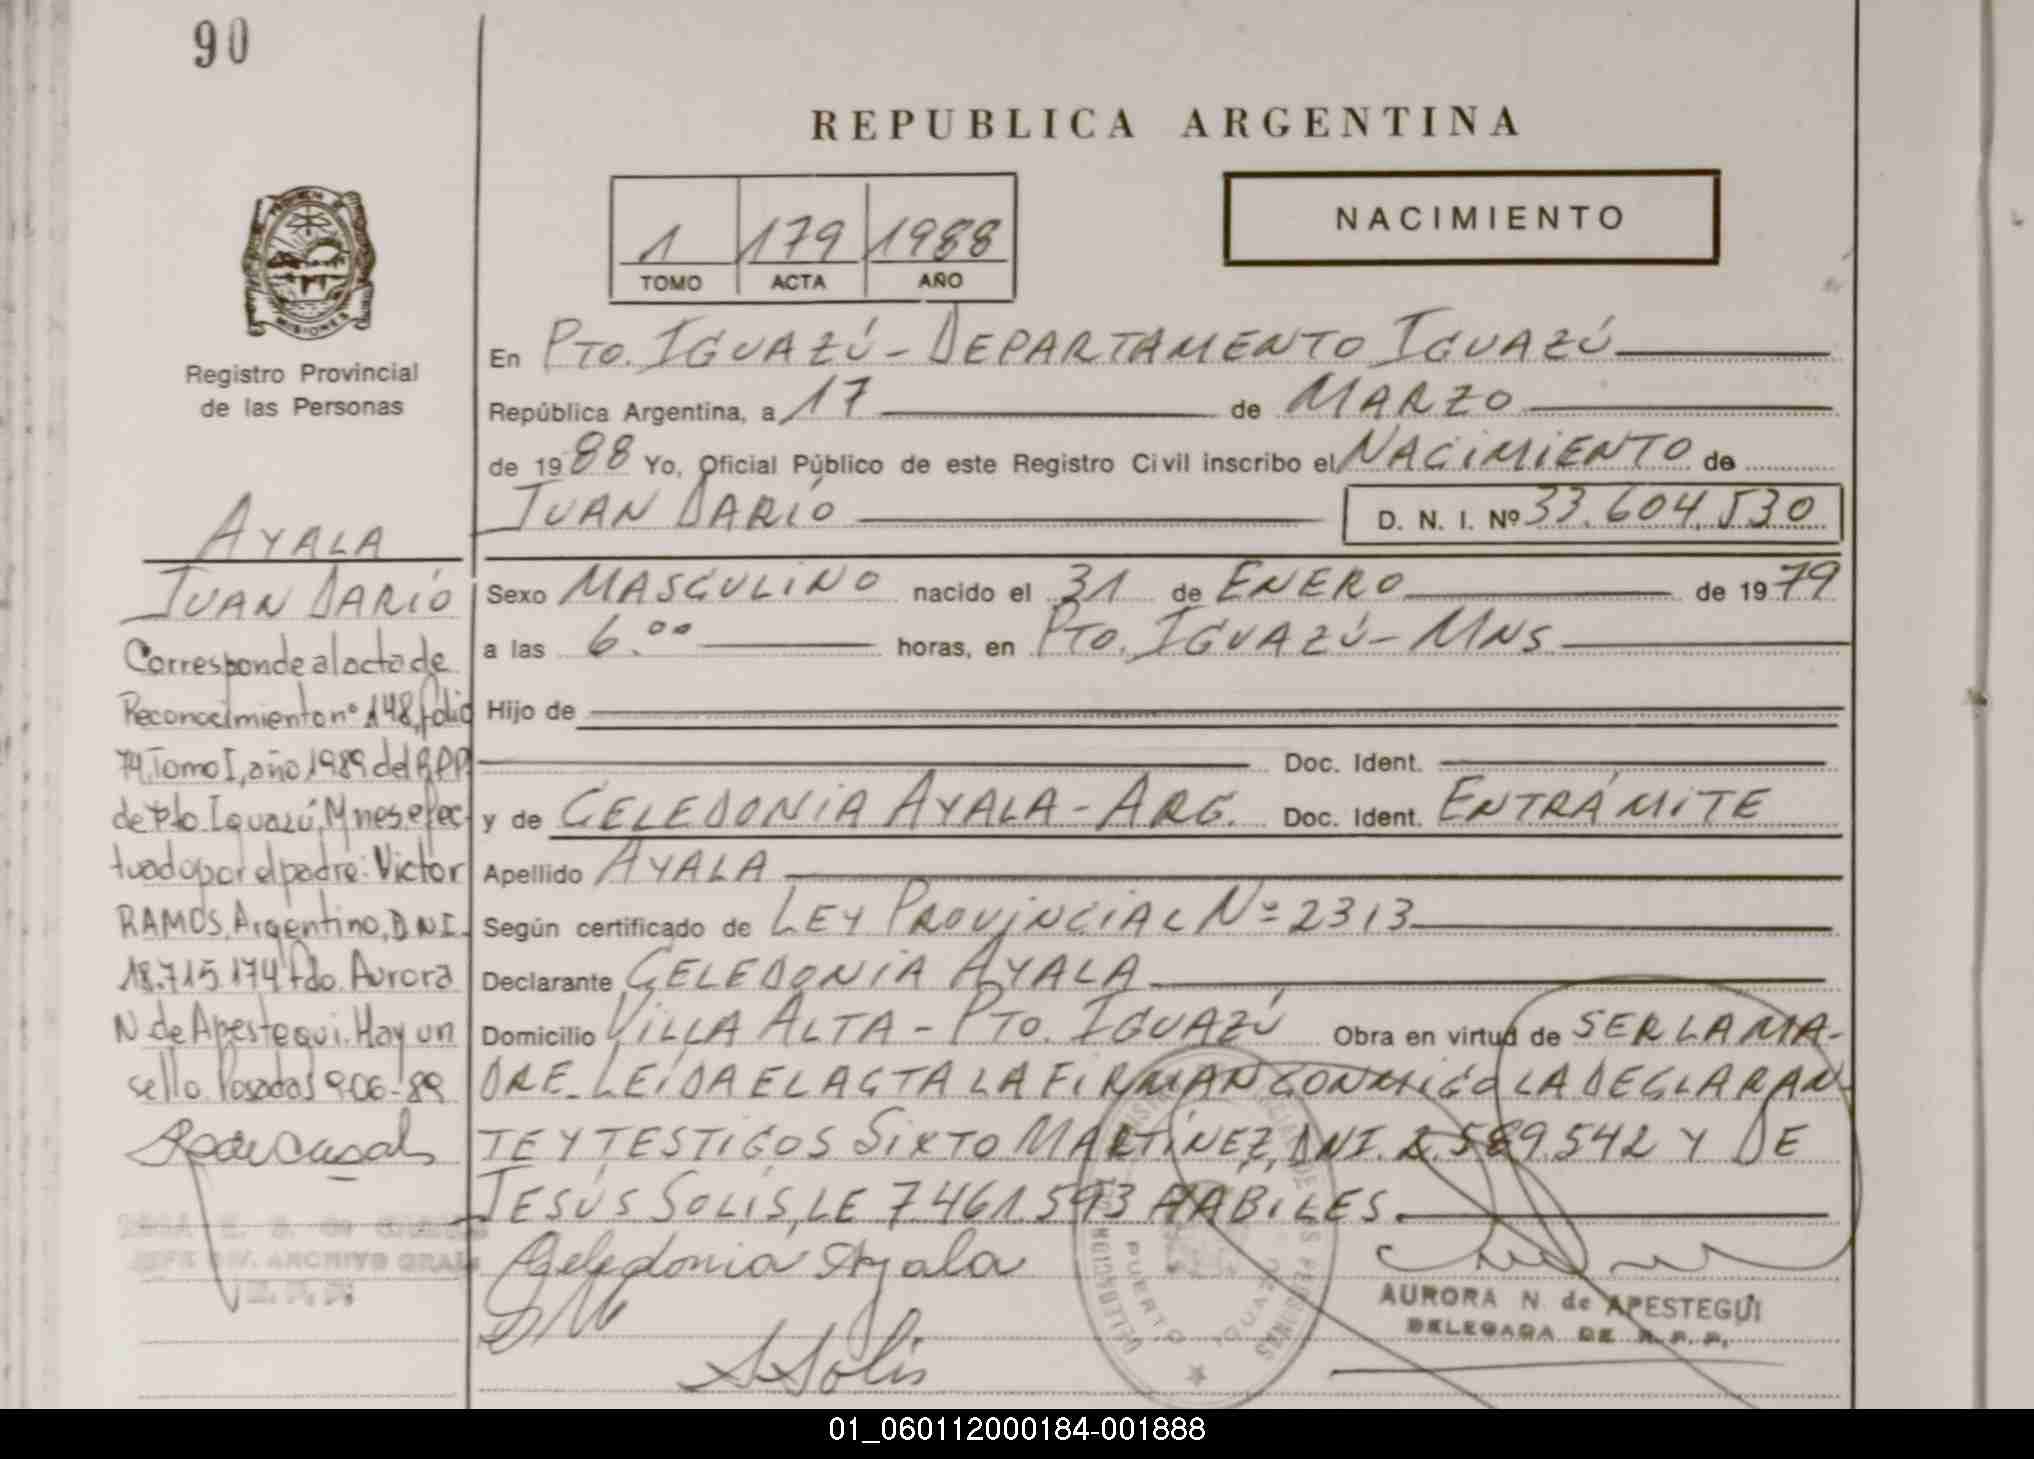 90
REPUBLICA ARGENTINA
1 179 1988
TOMO ACTA AÑO
NACIMIENTO
MISIONES
Registro Provincial
de las Personas
En PTO. IGUAZÚ - DEPARTAMENTO IGUAZÚ
República Argentina, a 17 de MARZO
de 1988 Yo, Oficial Público de este Registro Civil inscribo el NACIMIENTO de
JUAN DARÍO D. N. I. Nº 33.604.530
AYALA
JUAN DARÍO
Corresponde al acta de
Reconocimiento nº 148, folio
74, Tomo I, año 1989 del R.P.P.
de Pto. Iguazú, Mnes. efec-
tuado por el padre: Victor
RAMOS, Argentino, D.N.I.
18.715.174 fdo. Aurora
N. de Apestegui. Hay un
sello. Posadas 9-06-89
JEFE DIV. ARCHIVO GRAL.
Sexo MASCULINO nacido el 31 de ENERO de 1979
a las 6.00 horas, en PTO. IGUAZÚ - MNS
Hijo de
Doc. Ident.
y de CELEDONIA AYALA - ARG. Doc. Ident. EN TRÁMITE
Apellido AYALA
Según certificado de LEY PROVINCIAL Nº 2313
Declarante CELEDONIA AYALA
Domicilio VILLA ALTA - PTO. IGUAZÚ Obra en virtud de SER LA MA-
DRE. LEÍDA EL ACTA LA FIRMAN CONMIGO LA DECLARAN-
TE Y TESTIGOS SIXTO MARTÍNEZ, DNI. 2.589.542 Y DE
JESÚS SOLÍS, LE 7.461.593 HÁBILES.
Celedonia Ayala
S Solis
PUERTO IGUAZU
AURORA N. de APESTEGUI
DELEGADA DE R. P. P.
01_060112000184-001888